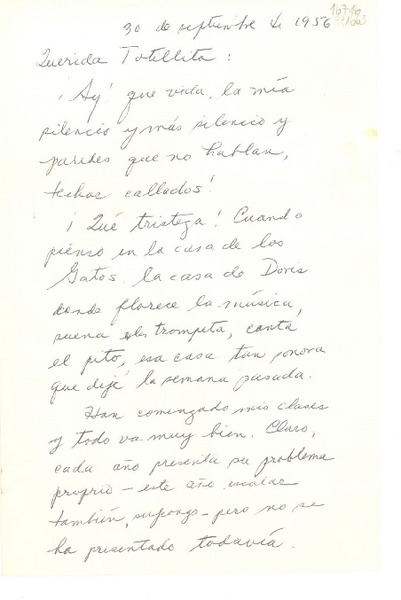 30 de septiembre de 1956
Querida Totillita:
¡Ay! que vida, la mía
silencio y más silencio y
paredes que no hablan,
techos callados!
¡Qué tristeza! Cuando
pienso en la casa de los
Gatos, la casa de Doris
donde florece la música,
suena la trompeta, canta
el pito, esa casa tan sonora
que dejé la semana pasada.
Han comenzado mis clases
y todo va muy bien. Claro,
cada año presenta su problema
proprio - este año
también, supongo - pero no se
ha presentado todavía.